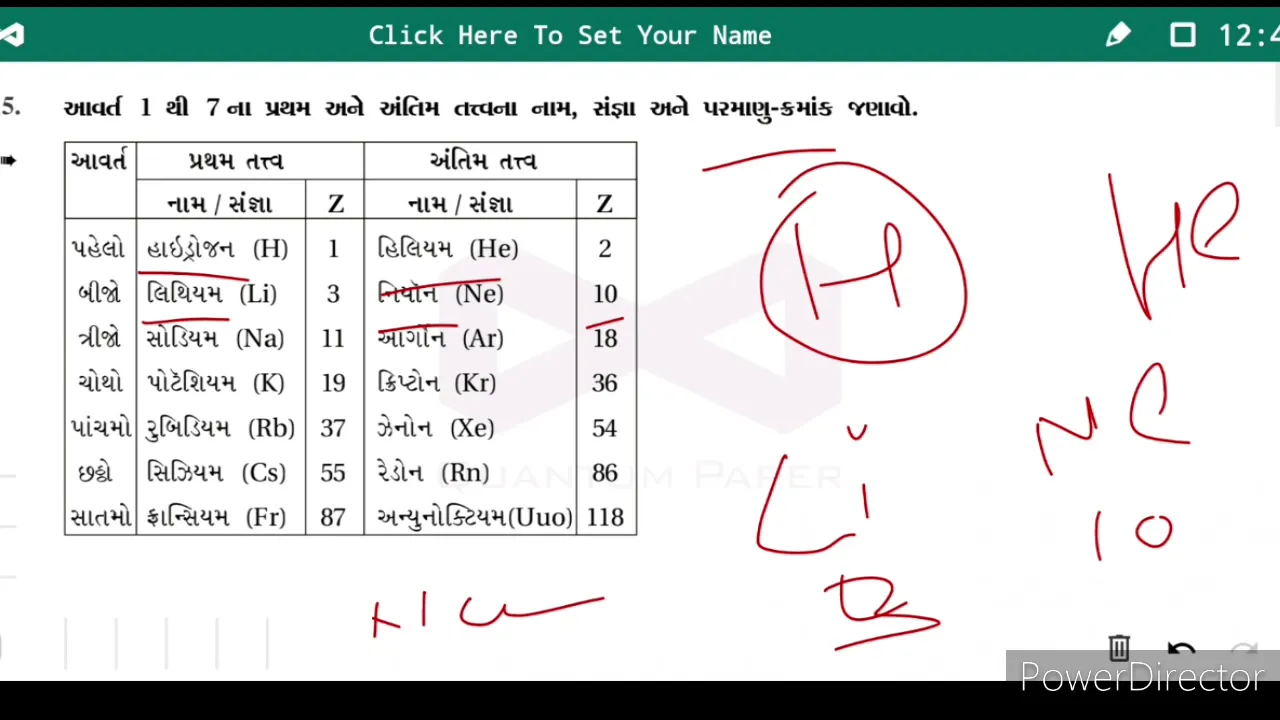 Click Here To Set Your Name
12:4
5. આવર્ત 1 થી 7 ના પ્રથમ અને અંતિમ તત્ત્વના નામ, સંજ્ઞા અને પરમાણુ-ક્રમાંક જણાવો.
આવર્ત પ્રથમ તત્ત્વ અંતિમ તત્ત્વ
નામ / સંજ્ઞા Z નામ / સંજ્ઞા Z
પહેલો હાઇડ્રોજન (H) 1 હિલિયમ (He) 2
બીજો લિથિયમ (Li) 3 નિયૉન (Ne) 10
ત્રીજો સોડિયમ (Na) 11 આર્ગોન (Ar) 18
ચોથો પોટૅશિયમ (K) 19 ક્રિપ્ટોન (Kr) 36
પાંચમો રુબિડિયમ (Rb) 37 ઝેનોન (Xe) 54
છઠ્ઠો સિઝિયમ (Cs) 55 રેડોન (Rn) 86
સાતમો ફ્રાન્સિયમ (Fr) 87 અન્યુનોક્ટિયમ(Uuo) 118
QUANTUM PAPER
H He
Ne
Li
10
PowerDirector